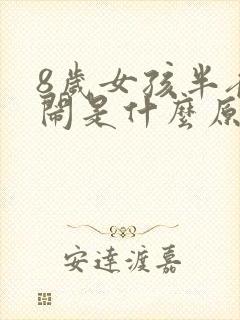 8歲女孩半
鬧是什麼原
安達渡嘉